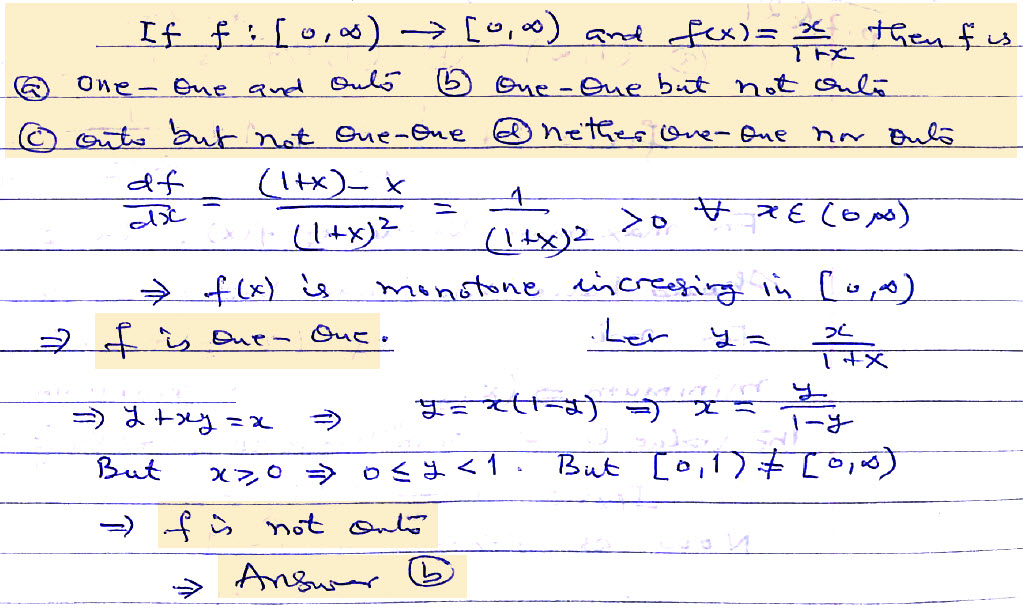 If f : [0,∞) → [0,∞) and f(x) = x/(1+x) then f is
(a) one-one and onto (b) one-one but not onto
(c) onto but not one-one (d) nether one-one nor onto
df/dx = ((1+x)-x)/(1+x)² = 1/(1+x)² >0 ∀ x ∈ (0,∞)
⇒ f(x) is monotone increesing in [0,∞)
⇒ f is one-one. Let y = x/(1+x)
⇒ y+xy=x ⇒ y = x(1-y) ⇒ x = y/(1-y)
But x≥0 ⇒ 0≤y<1. But [0,1) ≠ [0,∞)
⇒ f is not onto
⇒ Answer (b)